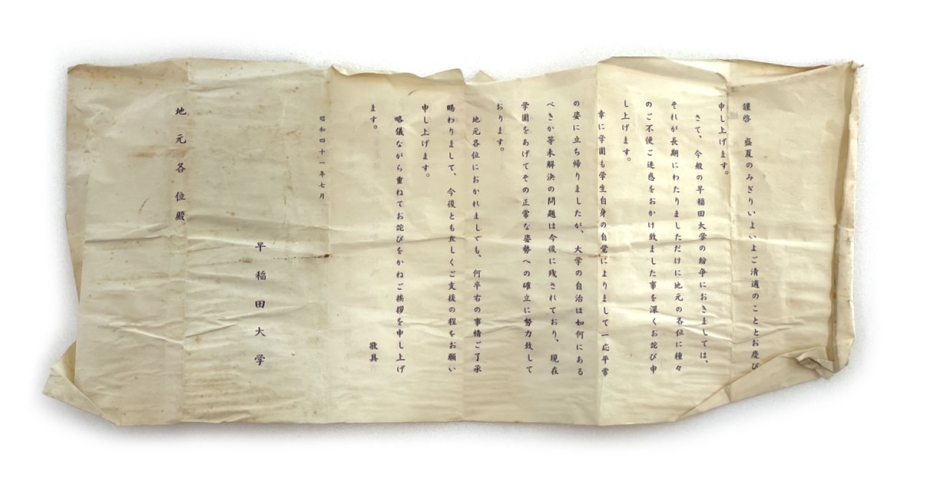 謹啓　盛夏のみぎりいよいよご清適のこととお慶び
申し上げます。
さて、今般の早稲田大学の紛争におきましては、
それが長期にわたりましただけに地元の各位に種々
のご不便ご迷惑をおかけ致しました事を深くお詫び申
し上げます。
幸に学園も学生自身の自覚によりまして一応平常
の姿に立ち帰りましたが、大学の自治は如何にある
べきか等未解決の問題は今後に残されており、現在
学園をあげてその正常な姿勢への確立に努力致して
おります。
地元各位におかれましても、何卒右の事情ご了承
賜わりまして、今後とも宜しくご支援の程をお願い
申し上げます。
略儀ながら重ねてお詫びをかねご挨拶を申し上げ
ます。
敬具
昭和四十一年七月
早稲田大学
地元各位殿